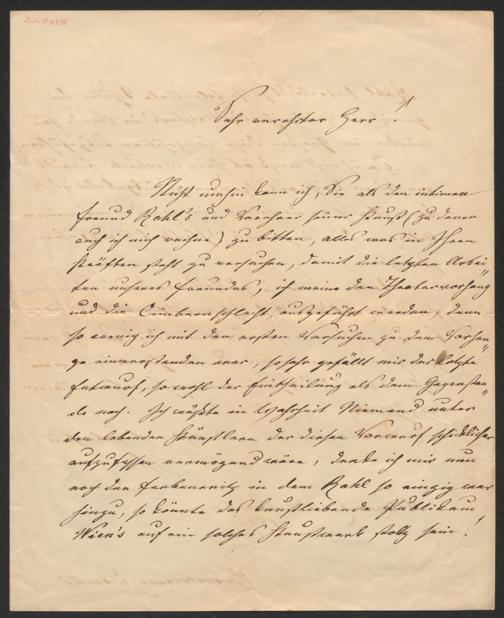 Sehr verehrter Herr!
Nicht umhin kann ich, Sie als den intimen
Freund Rahl's und Verehrer seiner Kunst (zu denen
auch ich mich rechne) zu bitten, alles was in Ihren
Kräften steht zu versuchen, damit die letzten Arbei„
ten unseres Freundes, ich meine den Theatervorhang
und die Cimbernschlacht, ausgeführt werden, denn
so wenig ich mit den ersten Versuchen zu dem Vorhan„
ge einverstanden war, so sehr gefällt mir der letzte
Entwurf, sowohl der Eintheilung als dem Gegenstan„
de nach. Ich wüßte in Wahrheit Niemand unter
den lebenden Künstlern der diesen Vorwurf schicklicher
aufzufassen vermögend wäre, denke ich mir nun
noch den Farbenreitz in dem Rahl so einzig war
hinzu, so könnte das kunstliebende Publikum
Wien's auf ein solches Kunstwerk stolz sein!